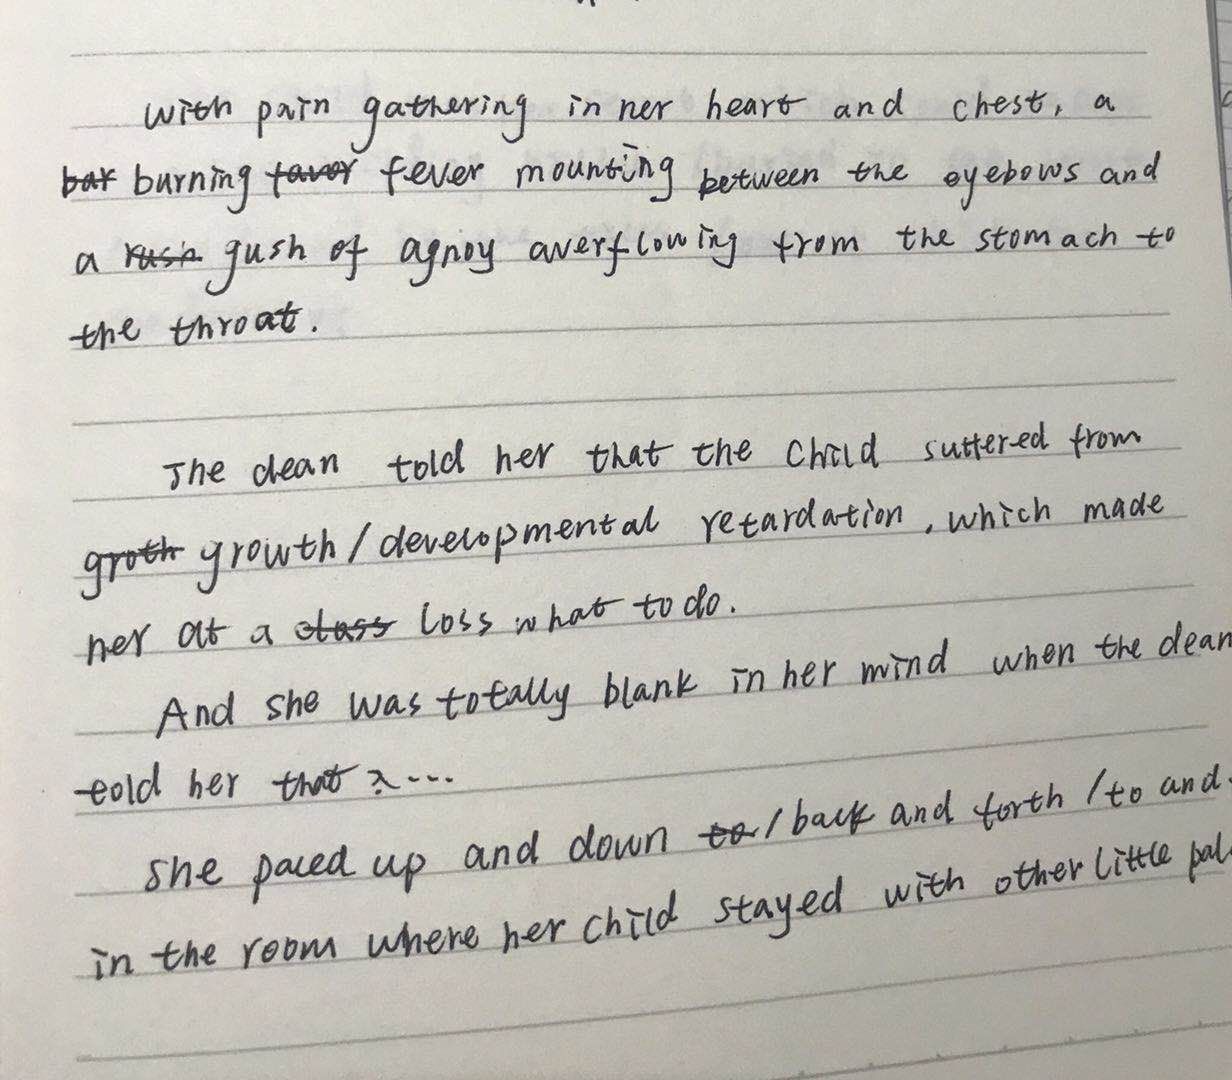 with pain gathering in her heart and chest, a
bar burning faver fever mounting between the eyebows and
a rush gush of agnoy averflowing from the stomach to
the throat.
The dean told her that the child suffered from
groth growth / developmental retardation, which made
her at a class loss what to do.
And she was totally blank in her mind when the dean
told her that ...
She paced up and down to / back and forth / to and
in the room where her child stayed with other little pal